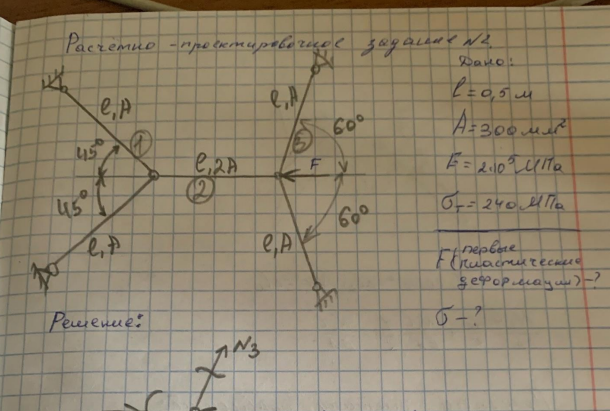 Расчётно-проектировочное задание №2.
Дано:
l=0,5 м
A=300 мм²
E=2·10⁵ МПа
σт=240 МПа
F(первые
пластические
деформации)-?
σ-?
l,A
45°
①
45°
l,A
l,2A
②
l,A
60°
③
F
60°
l,A
Решение:
N3